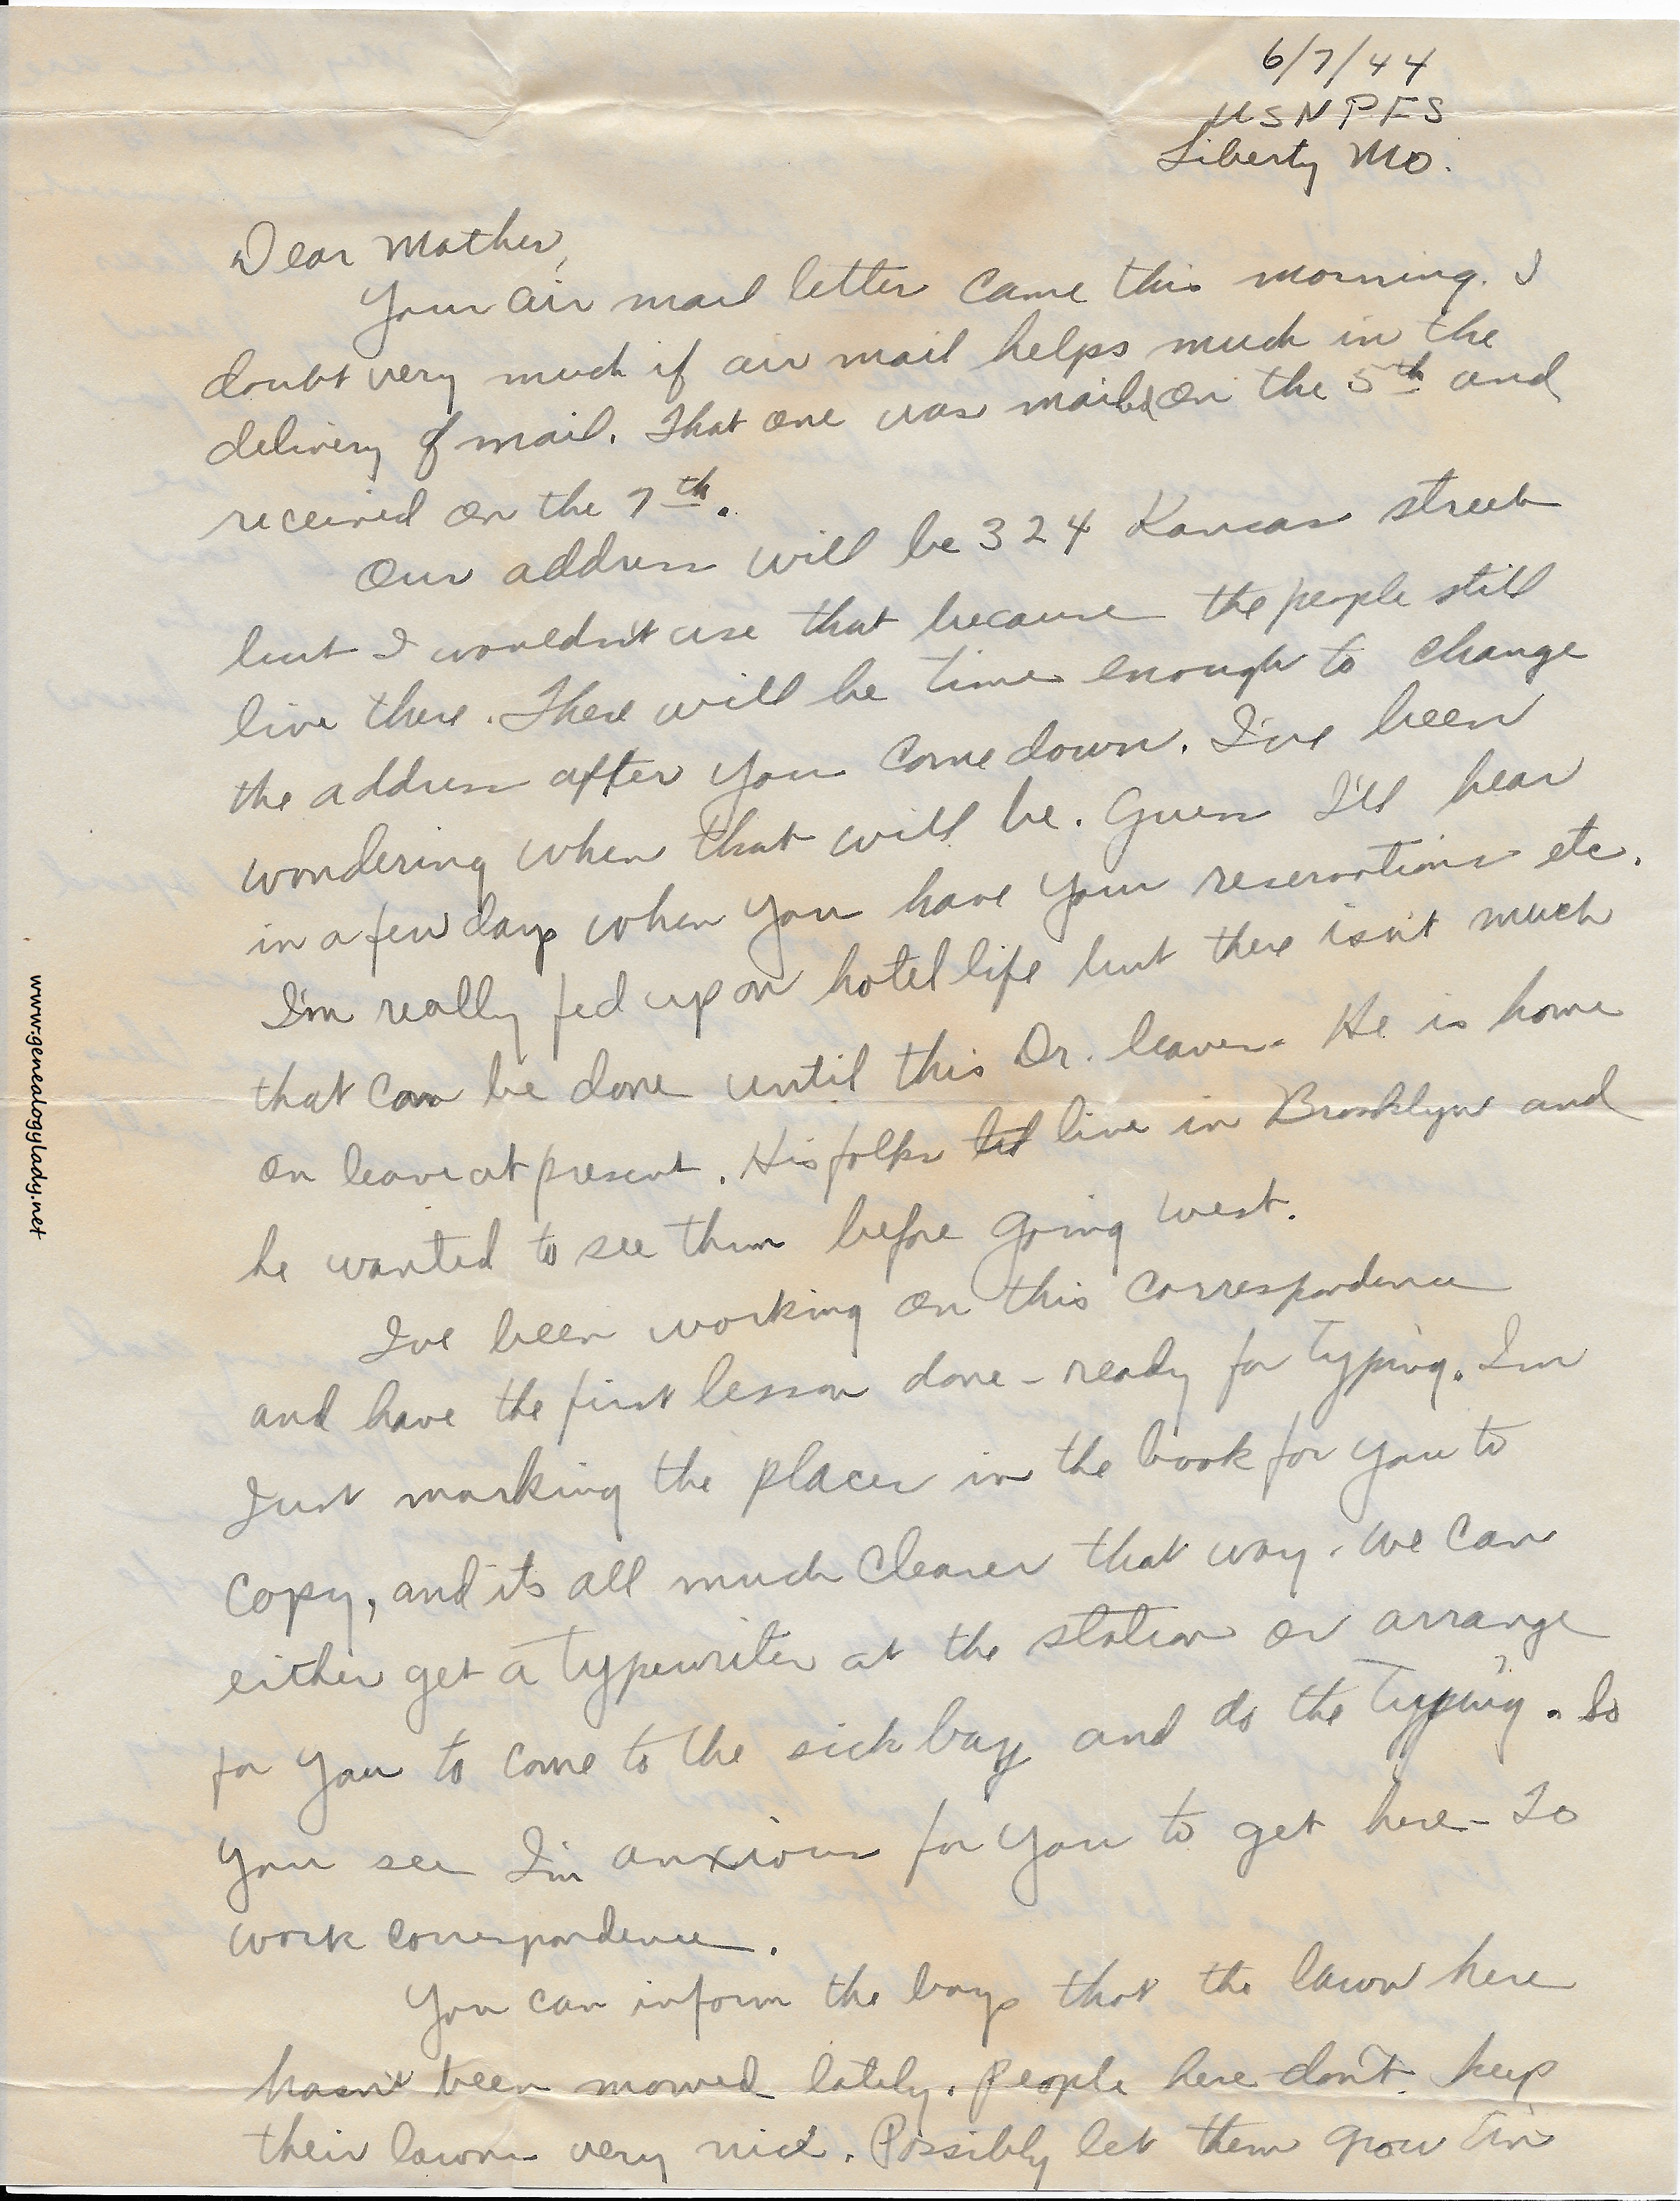 6/7/44
USNPFS
Liberty Mo.
Dear Mother,
Your air mail letter came this morning. I
doubt very much if air mail helps much in the
delivery of mail. That one was mailed on the 5th and
received on the 7th.
Our address will be 324 Kansas street
but I wouldn't use that because the people still
live there. There will be time enough to change
the address after you come down. I've been
wondering when that will be. Guess I'll hear
in a few days when you have your reservations etc.
I'm really fed up on hotel life but there isn't much
that can be done until this Dr. leaves. He is home
on leave at present. His folks live in Brooklyn and
he wanted to see them before going west.
I've been working on this correspondence
and have the first lesson done - ready for typing. I'm
Just marking the places in the book for you to
copy, and its all much clearer that way. We can
either get a typewriter at the station or arrange
for you to come to the sick bay and do the typing. So
you see I'm anxious for you to get here - To
work correspondence.
You can inform the boys that the lawn here
hasn't been mowed lately. People here don't keep
their lawns very nice. Possibly let them grow in
www.genealogylady.net